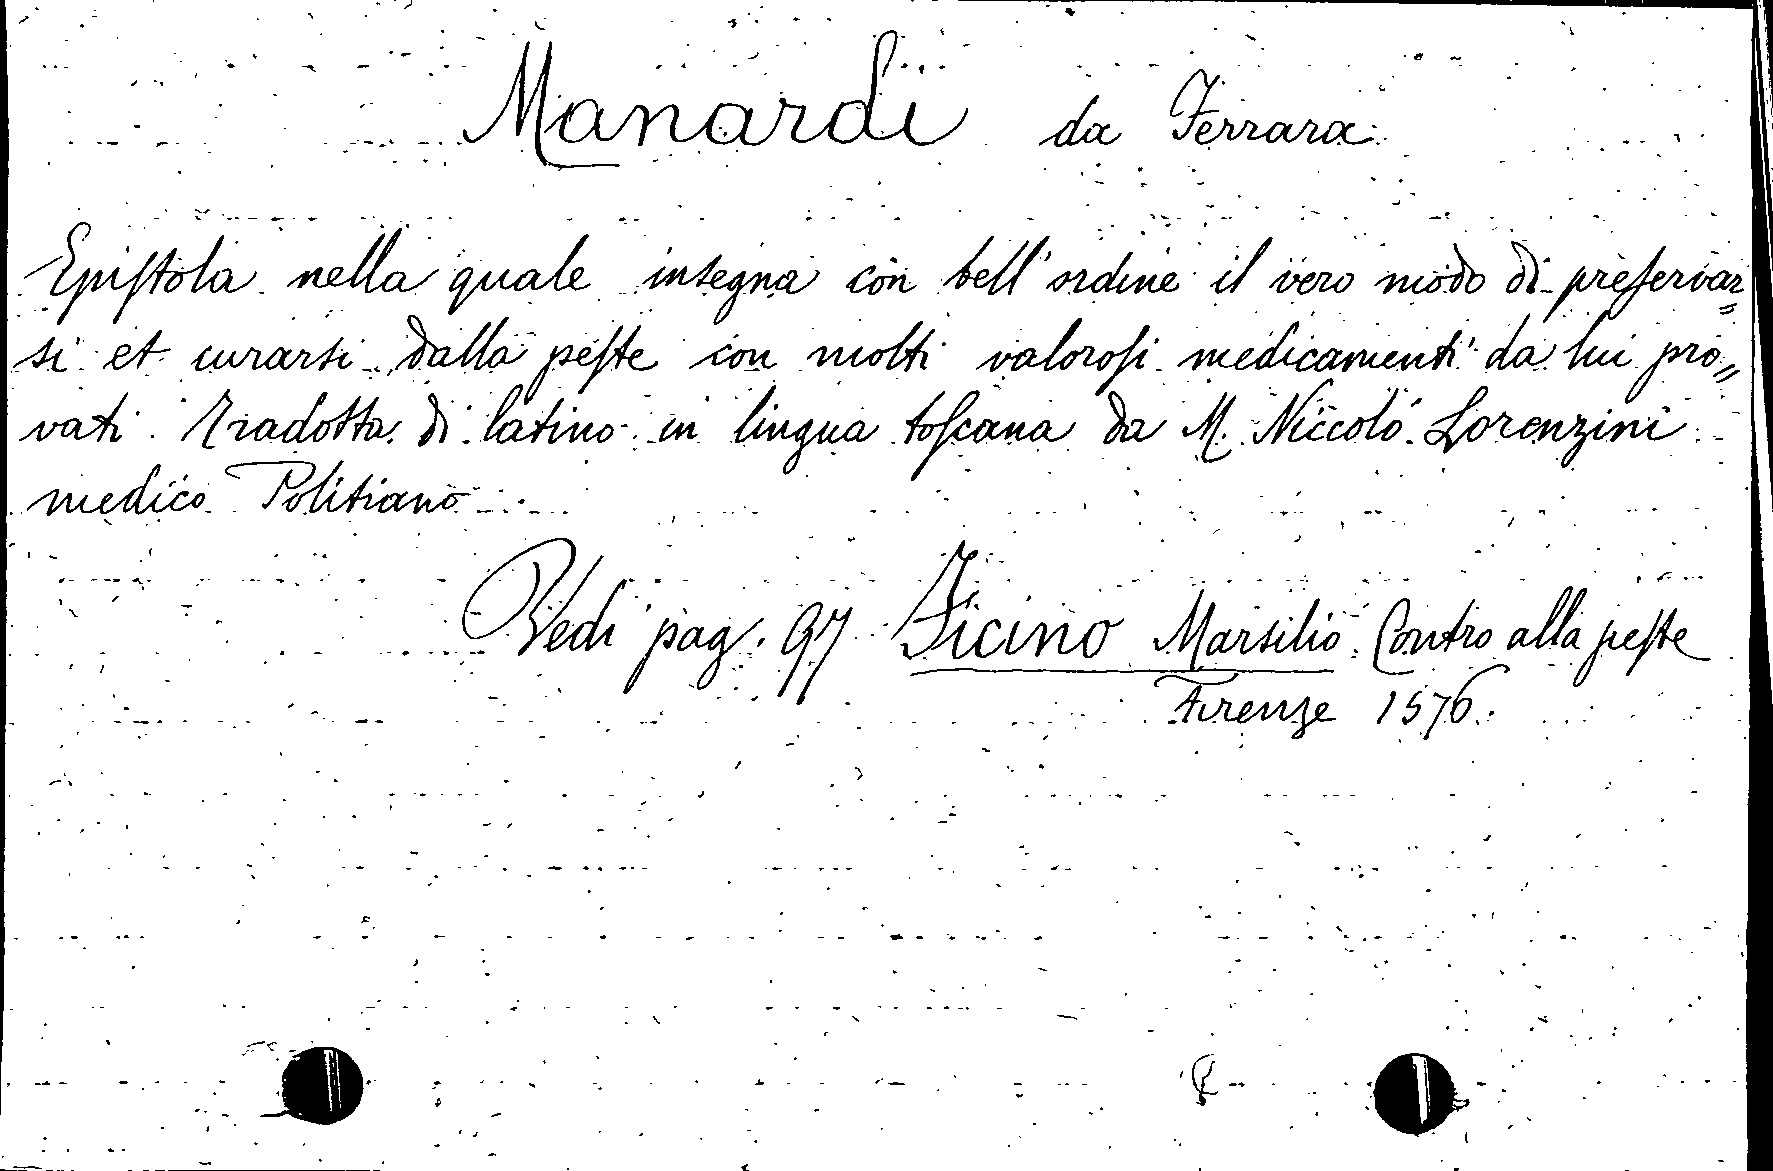 Manardi da Ferrara
Epiſtola nella quale insegna con bell'ordine il vero modo di preſervar„
si et curarsi dalla peſte con molti valoroſi medicamenti da lui pro„
vati. Tradotta di latino in lingua toſcana da M. Niccolò Lorenzini
medico Politiano
Vedi pag. 97 Ficino Marsilio Contro alla peſte
Firenze 1576.